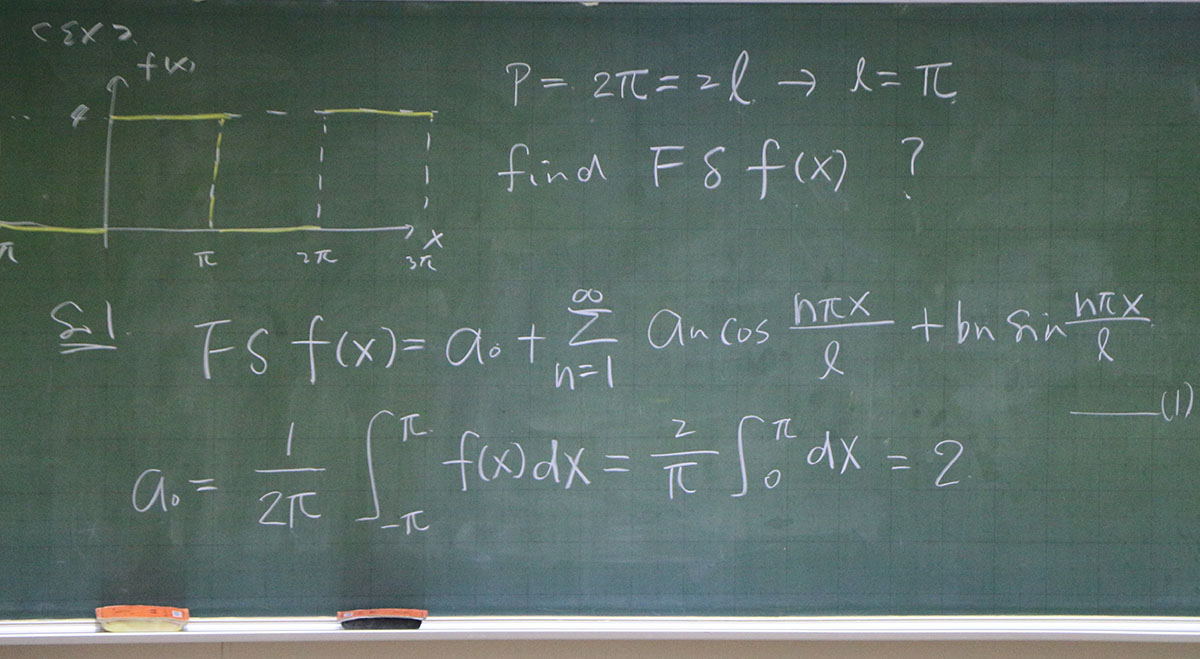 <EX>
f(x)
4
π π 2π 3π x
P = 2π = 2l → l = π
find FS f(x) ?
Sol FS f(x) = a₀ + ∑_{n=1}^{∞} an cos nπx/l + bn sin nπx/l
——(1)
a₀ = 1/2π ∫_{-π}^{π} f(x)dx = 2/π ∫_{0}^{π} dx = 2